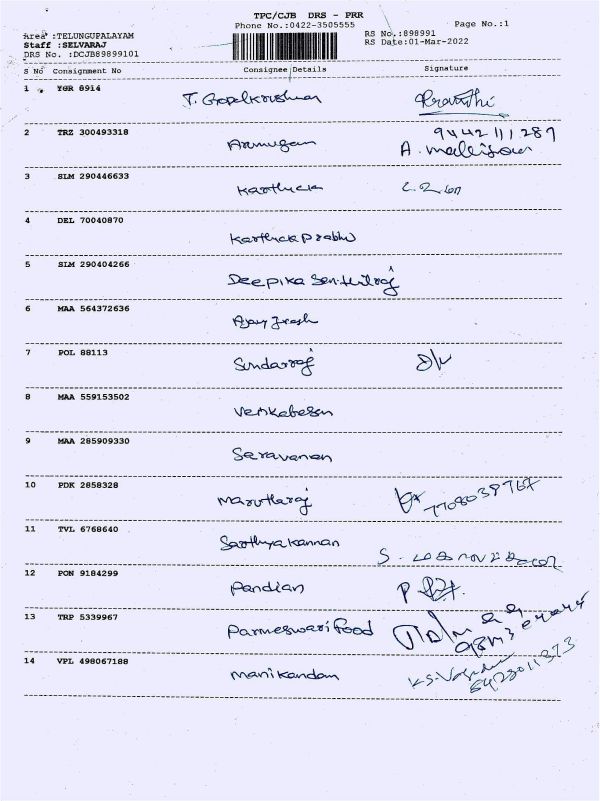 TPC/CJB DRS - PRR
Phone No.:0422-3505555
Page No.:1
Area :TELUNGUPALAYAM
Staff :SELVARAJ
DRS No. :DCJB89899101
RS No.:898991
RS Date:01-Mar-2022
S No Consignment No Consignee Details Signature
1 YGR 8914 T. Gopalkrishnan
2 TRZ 300493318 Arumugam 9442111287
A.
3 SLM 290446633 Karthick
4 DEL 70040870 Karthick Prabhu
5 SLM 290404266 Deepika Senthilraj
6 MAA 564372636 Ajay
7 POL 88113 Sundarraj
8 MAA 559153502 Venkatesan
9 MAA 285909330 Saravanan
10 PDK 2858328 Maruthraj 7708039767
11 TVL 6768640 Sathyakannan S.
12 PON 9184299 Pandian P
13 TRP 5339967 Parmeswari Food
14 VPL 498067188 Manikandan